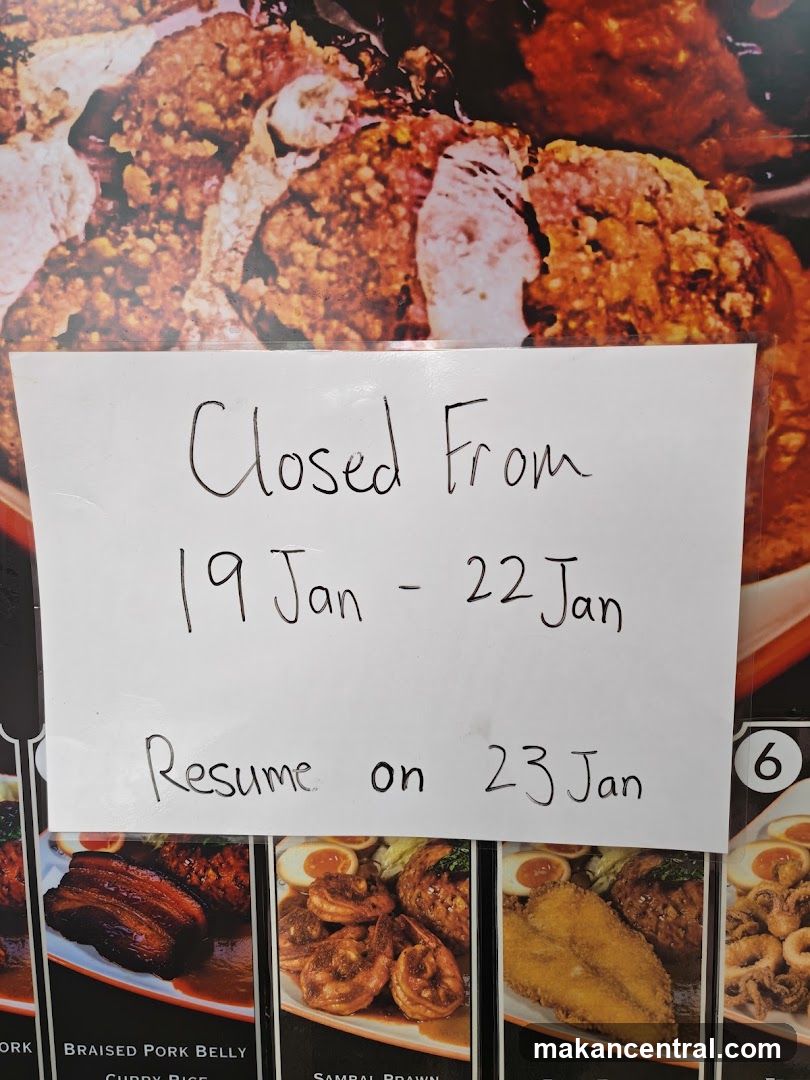 Closed From
19 Jan - 22 Jan
Resume on 23 Jan
6
ORK
BRAISED PORK BELLY
CURRY RICE
SAMBAL PRAWN
makancentral.com